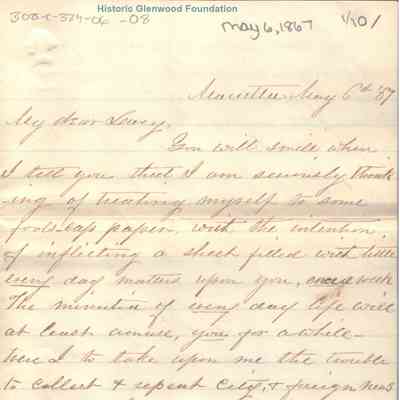 Historic Glenwood Foundation
May 6, 1867
1/10/
Marietta May 6th '67
My dear Lowry,
You will smile when
I tell you that I am seriously think
ing of treating myself to some
foolscap paper, with the intention
of inflicting a sheet filled with little
every day matters upon you, once a week
The minutia of every day life will
at least amuse, you for a while–
were I to take upon me the trouble
to collect & repeat City, & foreign news